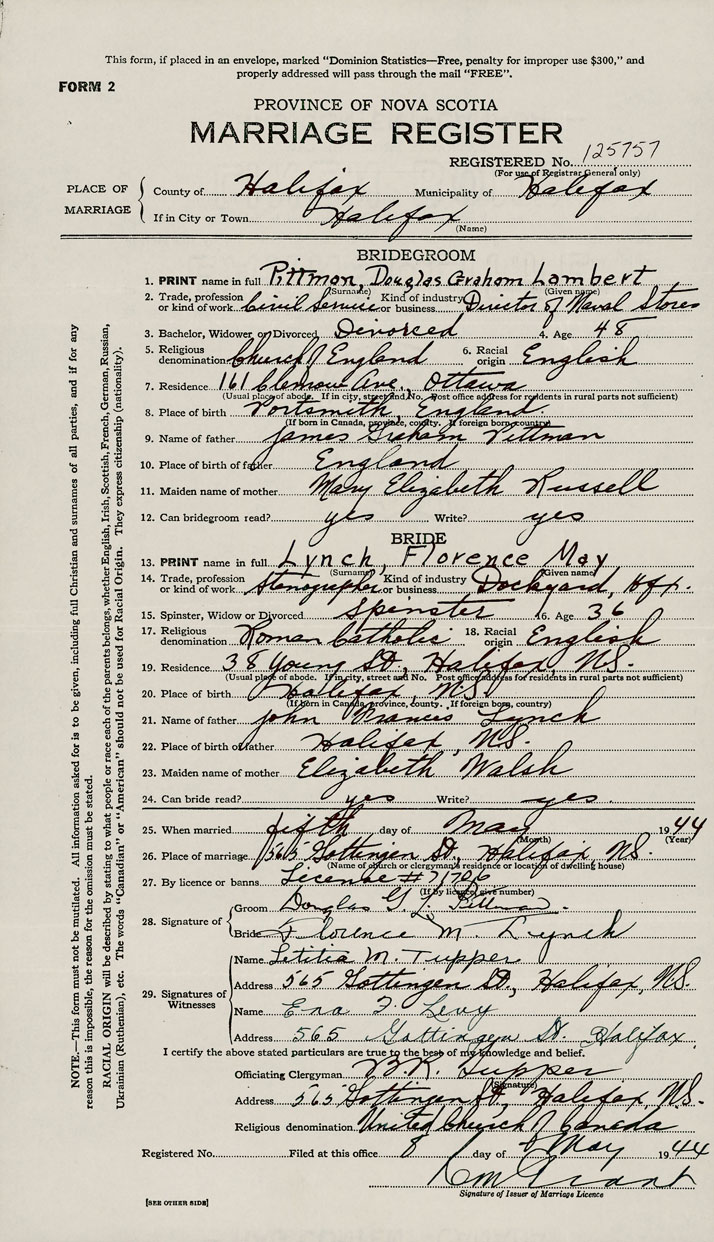 This form, if placed in an envelope, marked "Dominion Statistics—Free, penalty for improper use $300," and
properly addressed will pass through the mail "FREE".
FORM 2
PROVINCE OF NOVA SCOTIA
MARRIAGE REGISTER
REGISTERED No. 125757
(For use of Registrar General only)
PLACE OF MARRIAGE
County of Halifax Municipality of Halifax
If in City or Town Halifax
(Name)
BRIDEGROOM
1. PRINT name in full Pittman, Douglas Graham Lambert
(Surname) (Given name)
2. Trade, profession or kind of work Civil Service Kind of industry or business Director of Naval Stores
3. Bachelor, Widower, or Divorced Divorced 4. Age 48
5. Religious denomination Church of England 6. Racial origin English
7. Residence 161 Clemow Ave., Ottawa
(Usual place of abode. If in city, street and No. Post office address for residents in rural parts not sufficient)
8. Place of birth Portsmith, England.
(If born in Canada, province, county. If foreign born, country)
9. Name of father James Graham Pittman
10. Place of birth of father England
11. Maiden name of mother Mary Elizabeth Russell
12. Can bridegroom read? yes Write? yes
BRIDE
13. PRINT name in full Lynch, Florence May
(Surname) (Given name)
14. Trade, profession or kind of work Stenographer Kind of industry or business Dockyard, Hfx.
15. Spinster, Widow or Divorced Spinster 16. Age 36
17. Religious denomination Roman Catholic 18. Racial origin English
19. Residence 38 Young St., Halifax, N.S.
(Usual place of abode. If in city, street and No. Post office address for residents in rural parts not sufficient)
20. Place of birth Halifax, N.S.
(If born in Canada, province, county. If foreign born, country)
21. Name of father John Francis Lynch
22. Place of birth of father Halifax, N.S.
23. Maiden name of mother Elizabeth Walsh
24. Can bride read? yes Write? yes.
25. When married fifth day of May 1944
(Month) (Year)
26. Place of marriage 565 Gottingen St., Halifax, N.S.
(Name of church or clergyman's residence or location of dwelling house)
27. By licence or banns License # 71706
(If by licence, give number)
28. Signature of
Groom Douglas G. L. Pittman.
Bride Florence M. Lynch
29. Signatures of Witnesses
Name Letitia M. Tupper
Address 565 Gottingen St., Halifax, N.S.
Name Ena F. Levy
Address 565 Gottingen St. Halifax.
I certify the above stated particulars are true to the best of my knowledge and belief.
Officiating Clergyman Tupper
(Signature)
Address 565 Gottingen St., Halifax, N.S.
Religious denomination United Church of Canada
Registered No. Filed at this office 8 day of May 1944
Grant
Signature of Issuer of Marriage Licence
[SEE OTHER SIDE]
NOTE.—This form must not be mutilated. All information asked for is to be given, including full Christian and surnames of all parties, and if for any
reason this is impossible, the reason for the omission must be stated.
RACIAL ORIGIN will be described by stating to what people or race each of the parents belongs, whether English, Irish, Scottish, French, German, Russian,
Ukrainian (Ruthenian), etc. The words "Canadian" or "American" should not be used for Racial Origin. They express citizenship (nationality).